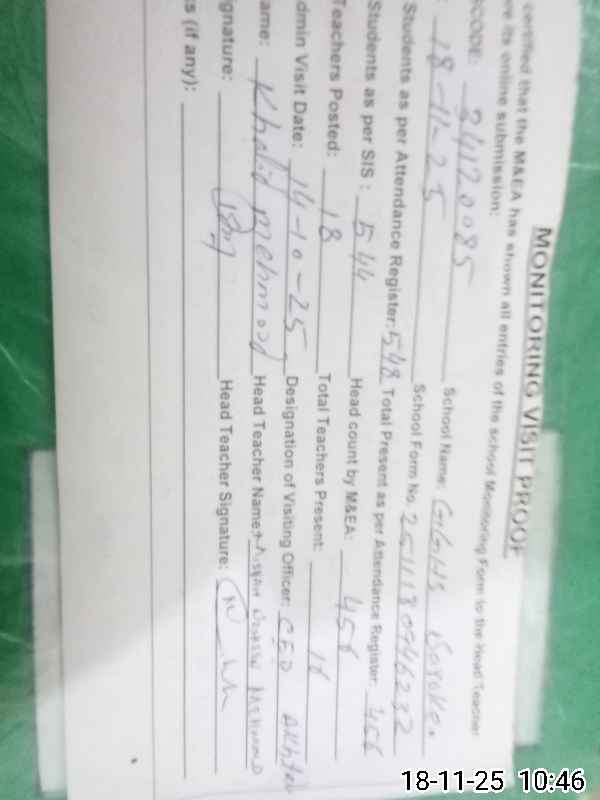 MONITORING VISIT PROOF
certified that the M&EA has shown all entries of the school Monitoring Form to the Head Teacher
its online submission:
3412 0085 School Name: GGHS
18-11-25 School Form No. 2511180746232
Students as per Attendance Register: 548 Total Present as per Attendance Register: 456
Students as per SIS: 544 Head count by M&EA: 456
Teachers Posted: 18 Total Teachers Present: 16
dmin Visit Date: 14-10-25 Designation of Visiting Officer: CEO
ame: Khalid Mehmood Head Teacher Name:
ignature: Head Teacher Signature:
s (if any):
18-11-25 10:46